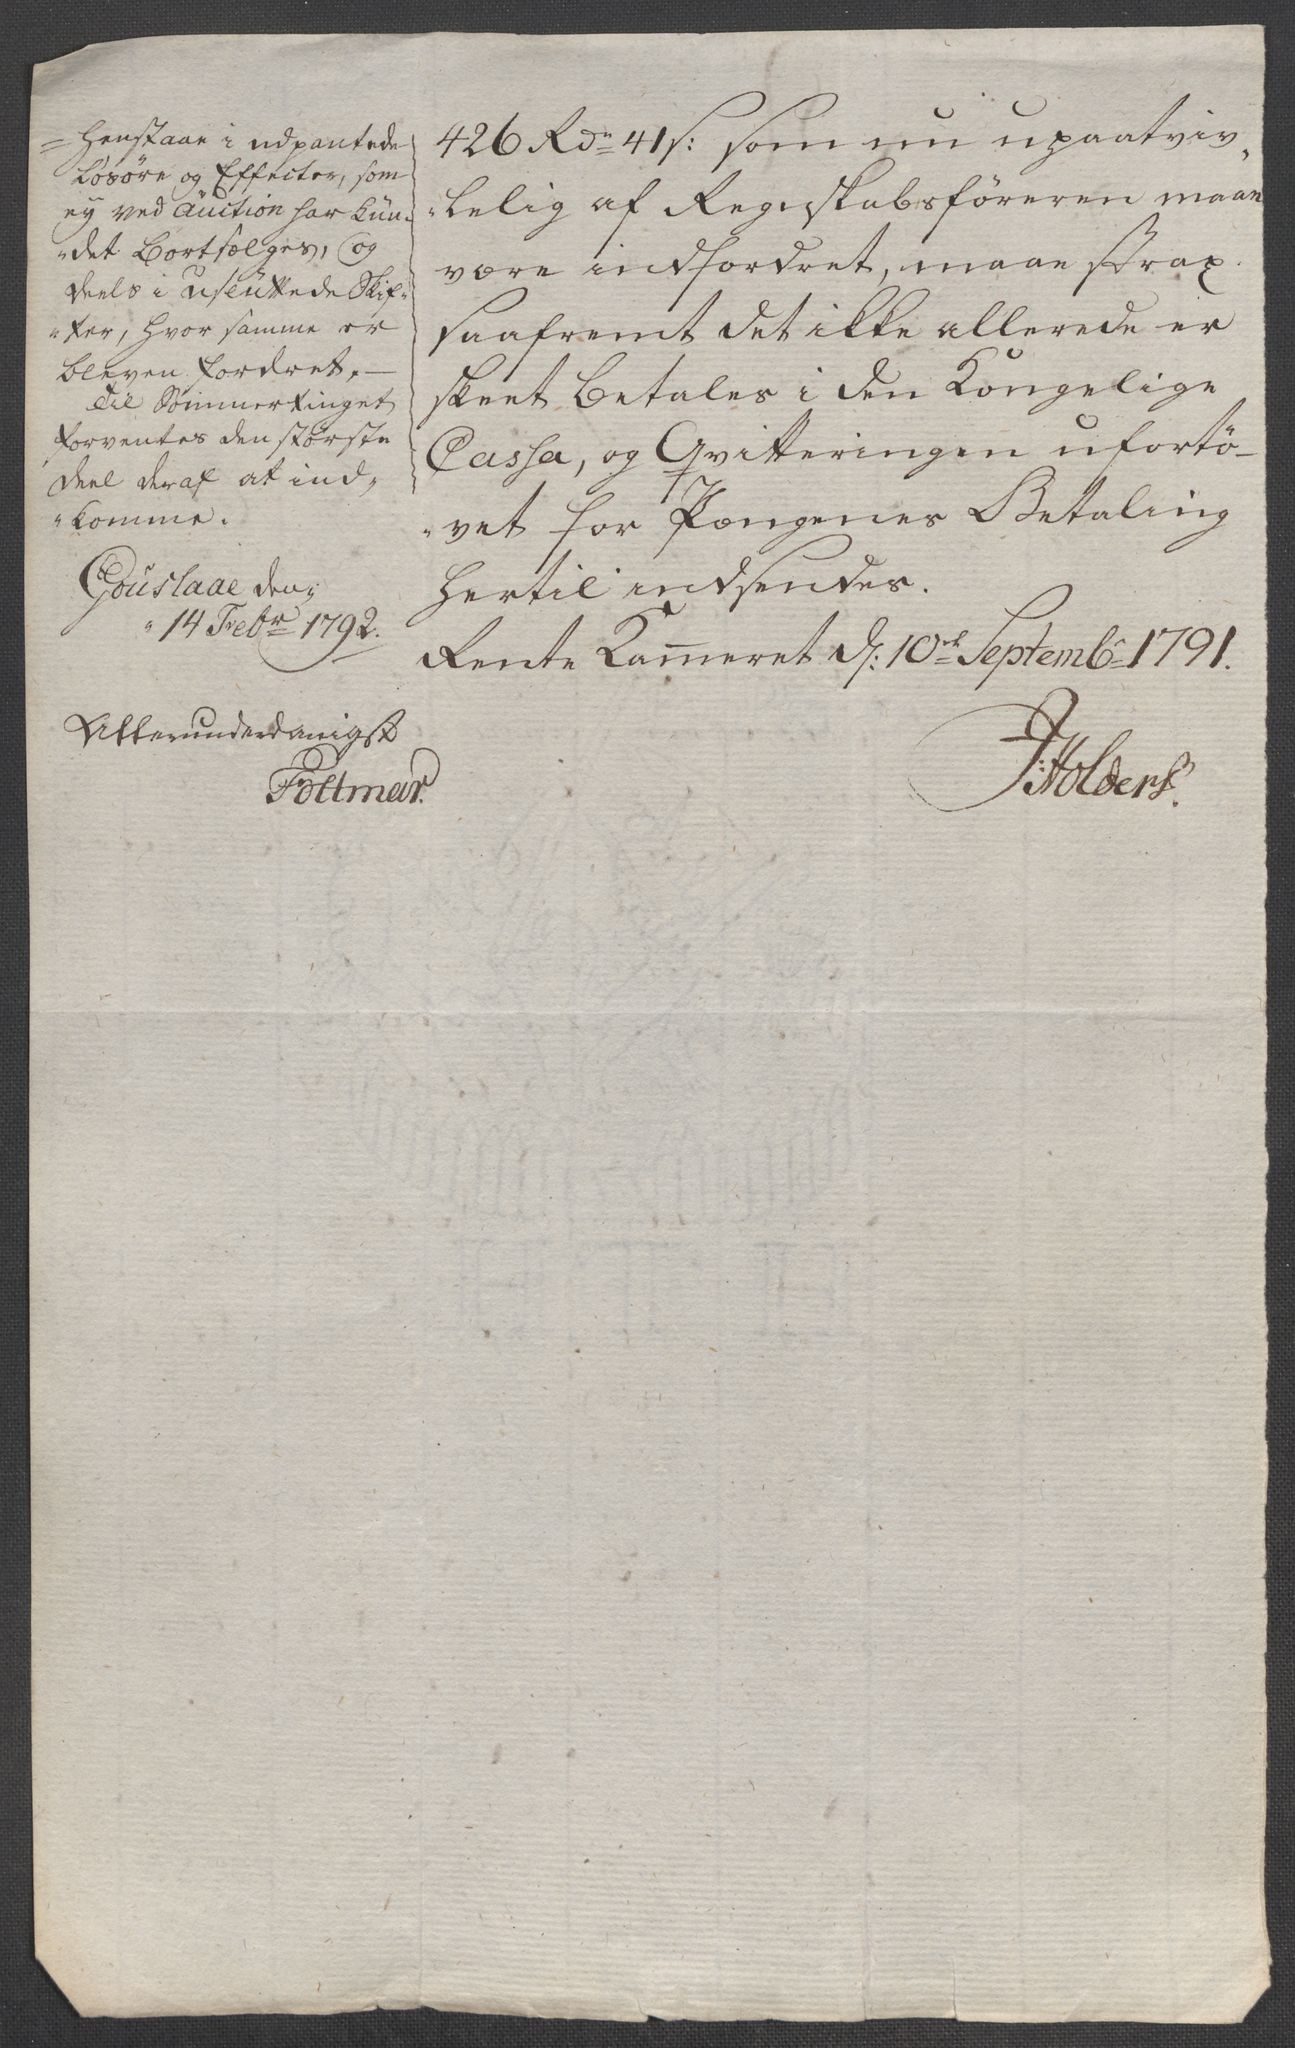 = henstaae i udpantede
Løsöre og Effecter, som
ey ved Auction har kun-
"det bortsælges, og
deels i usluttede Skif-
"ter, hvor samme er
bleven fordret. —
Til Sommertinget
forventes den største
deel deraf at ind-
"komme.
Gouslaae den,
" 14 Febr 1792.
Allerunderdanigst
Follmar.
426 Rdr 41 s: som nu upaatviv-
"lelig af Regnskabsföreren maae
være indfordret, maae strax
saafremt det ikke allerede er
skeet betales i den Kongelige
Cassa, og Qvitteringen ufortö-
"vet for Pængenes Betaling
hertil indsendes.
Rente Kammeret d: 10de Septembr 1791.
J: Holders.